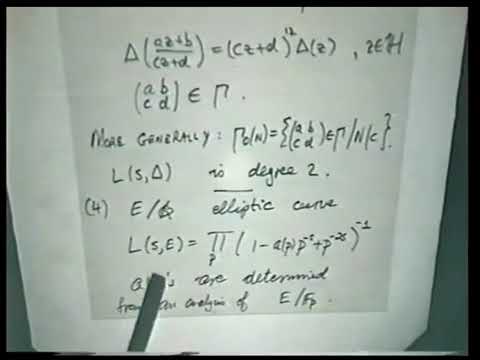 Δ(az+b/cz+d) = (cz+d)^12 Δ(z) , z∈ℍ
(a b
c d) ∈ Γ.
MORE GENERALLY : Γ₀(N) = {(a b
c d) ∈ Γ / N|c}.
L(s,Δ) is degree 2.
(4) E/ℚ elliptic curve
L(s,E) = ∏_p (1 - a(p)p^-s + p^-2s)^-1
are determined
an analysis of E/𝔽p.